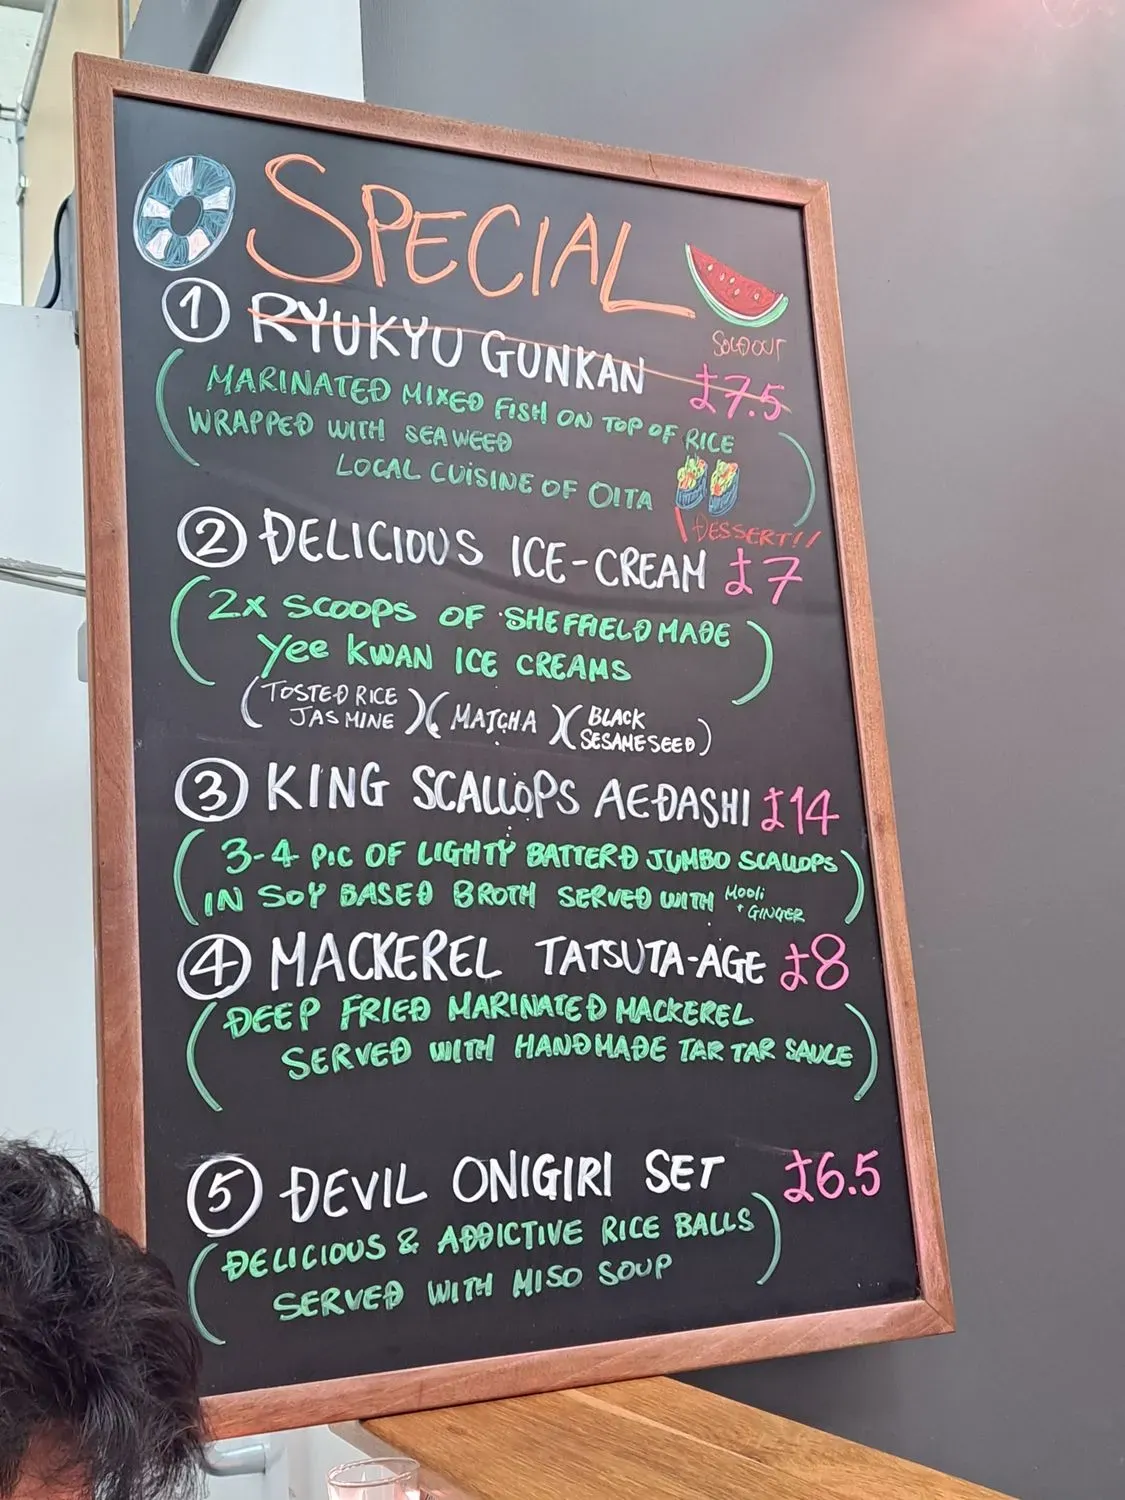 SPECIAL
SOLD OUT
① RYUKYU GUNKAN £7.5
(MARINATED MIXED FISH ON TOP OF RICE
WRAPPED WITH SEAWEED
LOCAL CUISINE OF OITA)
DESSERT!!
② DELICIOUS ICE-CREAM £7
(2x SCOOPS OF SHEFFIELD MADE
Yee KWAN ICE CREAMS)
(TOSTED RICE JASMINE) (MATCHA) (BLACK SESAME SEED)
③ KING SCALLOPS AEDASHI £14
(3-4 PIC OF LIGHTY BATTERD JUMBO SCALLOPS
IN SOY BASED BROTH SERVED WITH MOOLI + GINGER)
④ MACKEREL TATSUTA-AGE £8
(DEEP FRIED MARINATED MACKEREL
SERVED WITH HANDMADE TAR TAR SAUCE)
⑤ DEVIL ONIGIRI SET £6.5
(DELICIOUS & ADDICTIVE RICE BALLS
SERVED WITH MISO SOUP)